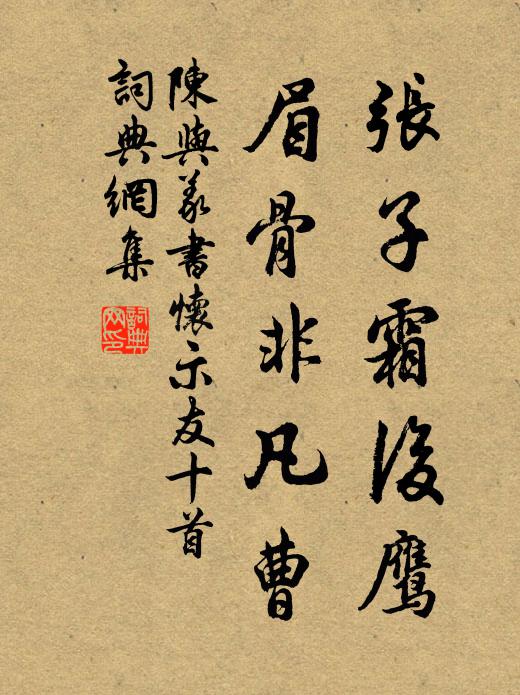 張子霜後鷹
眉骨非凡曹
陳與義書懷示友十首
詞典網集
詞典網印